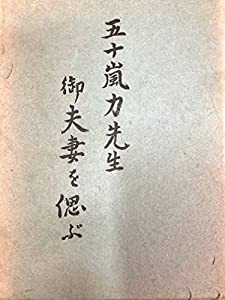 五十嵐力先生
御夫妻を偲ぶ